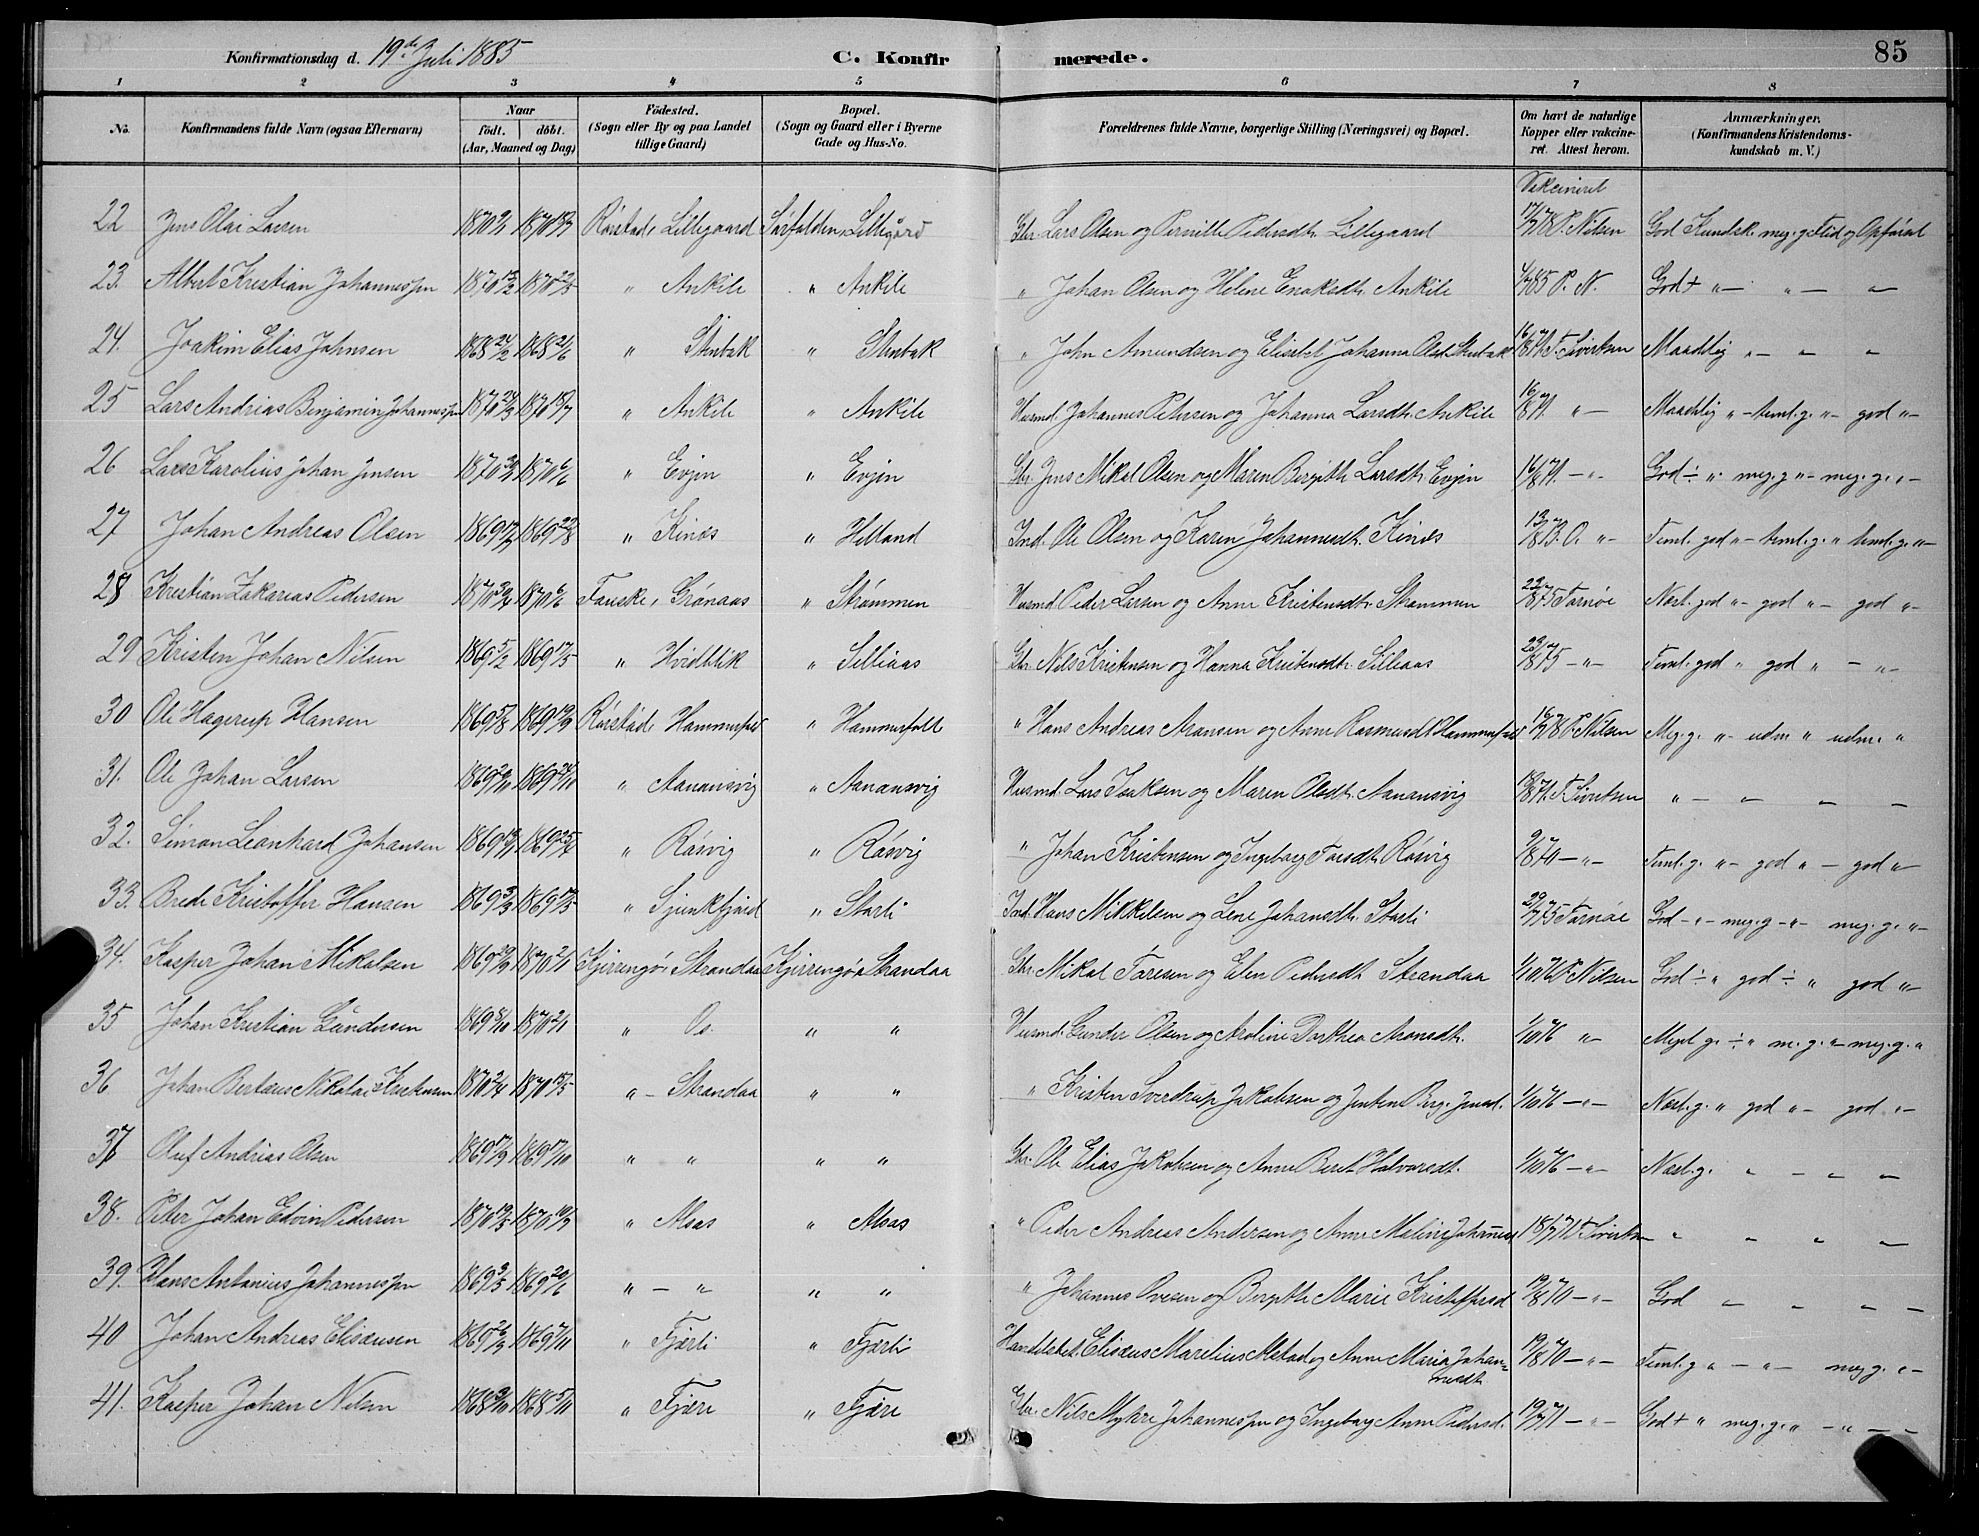 Konfirmationsdag d. 19de Juli 1885
C. Konfirmerede.
85
1 2 3 4 5 6 7 8
No. Konfirmandens fulde Navn (ogsaa Efternavn) Naar födt. döbt. (Aar, Maaned og Dag) Födested. (Sogn eller By og paa Landet tillige Gaard) Bopæl. (Sogn og Gaard eller i Byerne Gade og Hus-No. Forældrenes fulde Navne, borgerlige Stilling (Næringsvei) og Bopæl. Om havt de naturlige Kopper eller vakcineret. Attest herom. Anmærkninger. (Konfirmandens Kristendomskundskab m. V.)
Vakcineret
22 Jens Olai Larsen 1870 1870 Rörstad, Lillegaard Sörfolden, Lillegård Gbr. Lars Olsen og Pernille Pedersdtr. Lillegaard 17/7 78 P. Nilsen God Kundsk. meg. g. Flid og Opförsel
23. Albert Kristian Johannessen 1870 1870 " Ankile " Ankile " Johan Olsen og Helene Enoksdtr. Ankile 85 P. N. God + " — " — "
24. Joakim Elias Johnsen 1868 24/2 1868 21/6 " Stenbak " Stenbak " John Amundsen og Elisebet Johanna Olsd. Stenbak 16/8 71 T. Sivertsen Maadelig " — " "
25 Lars Andreas Benjamin Johannessen 1870 1870 18/7 " Ankile " Ankile Husmd. Johannes Petersen og Johanna Larsdtr. Ankile 16/8 71. " — Maadelig " — teml. g. " — god " —
26 Lars Karolius Johan Jensen 1870 1870 6/6 " Evjen " Evjen Gbr. Jens Mikal Olsen og Maren Bergith Larsdtr. Evjen 16/8 71. — " — God ÷ " meg. g " — meg. g. " —
27 Johan Andreas Olsen 1869 1869 22/8 " Kinæs " Helland Ind. Ole Olsen og Karen Johannesdtr. Kinæs 13/8 73. O. " — Teml. god " — teml. g. " teml. g. " —
28 Kristian Zakarias Pedersen 1870 1870 6/6 Fauske, Grönaas " Strömmen Husmd. Peder Larsen og Anne Kristensdtr. Strömmen 22/8 75 Tarnöe Næst. god " — god " — god " —
29 Kristen Johan Nilsen 1869 5/2 1869 17/5 " Hvidblik " Silliaas Gbr. Nils Kristensen og Hanna Kristensdtr. Silliaas 23/8 75 — " — Teml. god " god " — " —
30 Ole Hagerup Hansen 1869 5/8 1869 19/9 Rörstad, Hammerfald " Hammerfald " Hans Andreas Aronsen og Anne Rasmusdtr. Hammerfald 16/7 78 P. Nilsen Meg. g. " — udm " udm. "
31. Ole Johan Larsen 1869 1869 24/11 " Aanansvig " Aanansvig Husmd. Lars Isaksen og Maren Olsdtr. Aanansvig 71. T. Sivertsen " — " " —
32. Simon Leonhard Johansen 1869 1869 25/4 " Rösvig " Rösvig " Johan Kristensen og Ingeborg Torsdtr. Rösvig 9/8 70 — " — Teml. g. " — god " — god " —
33. Brede Kristoffer Hansen 1869 1869 17/5 " Sjunkfjord " Storli Ind. Hans Mikkelsen og Lene Johansdtr. Storli 23/7 75 Tarnöe God — " — meg. g — " — meg. g. " —
34. Kasper Johan Mikalsen 1869 1870 2/1 Kjerringö, Strandaa Kjerringö, Strandaa Gbr. Mikal Toresen og Elen Pedersdtr. Strandaa 1/10 76 P. Nilsen God ÷ " god ÷ " god " —
35 Johan Kristian Gundersen 1869 8/10 1870 2/1 " Os. " " Husmd. Gunder Olsen og Aroline Dorthea Aronsdtr. 1/10 76 " — Meget g. ÷ " m. g. " — meg. g. "
36 Johan Bertæus Nikolai Kristensen 1870 1870 15/5 " — Strandaa " " " Kristen Sverdrup Jakobsen og Jentine Berg. Jensd. 1/10 76 — " — Næst. g. " god " — god " —
37 Oluf Andrias Olsen 1869 17/9 1869 17/10 " " " " Gbr. Ole Elias Jakobsen og Anne Berit Halvorsdt. 1/10 76 — " — Næst. g. " — " — "
38. Peter Johan Edvin Pedersen 1870 19/5 1870 10/7 " Alsas " Alsas " Peder Andreas Andersen og Anne Maline Johannesd 18/7 71 T. Sivertsen — " " " —
39. Hans Antonius Johannessen 1869 3/5 1869 20/6 " — " " " " Johannes Ovesen og Bergithe Marie Kristoffersd 19/8 70 — " — God " " " "
40 Johan Andreas Elisæussen 1869 26/9 1869 7/11 " Fjærli " Fjærli Handelsbet. Elisæus Marelius Alstad og Anne Maria Johannesdtr 19/8 70 — " — Teml. g " — " — meg. g. " —
41. Kasper Johan Nilsen 1868 3/10 1868 5/11 " Fjære " Fjære Gbr. Nils Myhre Johannessen og Ingeborg Anne Pedersd. 19/7 71 — " — God + " meg. g. " — " — —